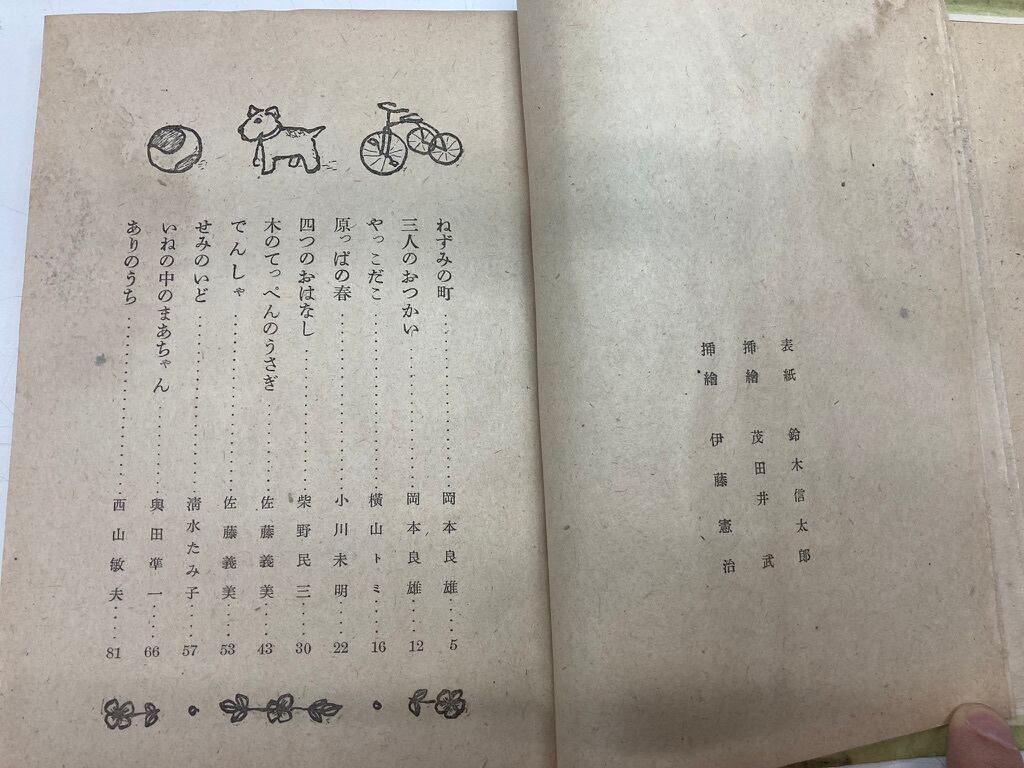 表紙 鈴木信太郎
挿繪 茂田井武
挿繪 伊藤憲治
ねずみの町……岡本良雄……5
三人のおつかい……岡本良雄……12
やっこだこ……横山トミ……16
原っぱの春……小川未明……22
四つのおはなし……柴野民三……30
木のてっぺんのうさぎ……佐藤義美……43
でんしゃ……佐藤義美……53
せみのいど……清水たみ子……57
いねの中のまあちゃん……與田凖一……66
ありのうち……西山敏夫……81